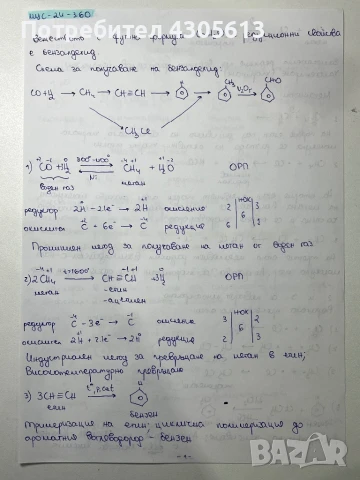 Потребител 4305613
НЦС-24-360
с бензалдехид.
Схема за получаване на бензалдехид:
CO+H₂ → CH₄ → CH≡CH → → CH₃ V₂O₅ → CHO
CH₃Cl
1) CO + H₂ ⇌ CH₄ + H₂O ОРП
воден газ метан
редуктор 2H - 2.1e⁻ → 2H окисление 2 НОК 3
окислител C + 6e⁻ → C редукция 6 6 2
Промишлен метод за получаване на метан от воден газ
2) 2CH₄ t>1500° CH≡CH + 3H₂ ОРП
метан - етин
- ацетилен
редуктор C - 3e⁻ → C окисление 3 НОК 2
окислител 2H + 2.1e⁻ → 2H редукция 2 6 3
Индустриален метод за превръщане на метан в етин;
Високотемпературно превръщане
3) 3CH≡CH t°, P, cat →
етин бензен
Тримеризация на етин; циклична полимеризация до
ароматен въглеводород - бензен
- 1 -
BAZAR
bg